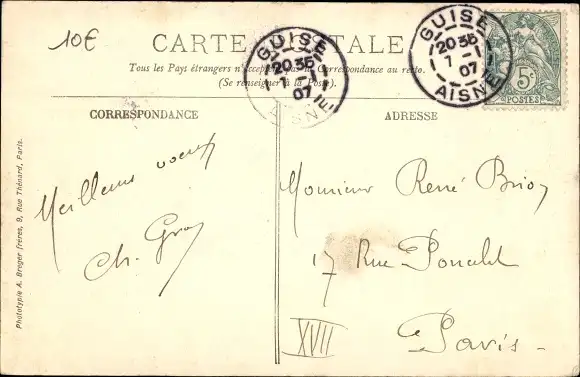 10€
CARTE POSTALE
Tous les Pays étrangers n'acceptent pas la Correspondance au recto.
(Se renseigner à la Poste).
GUISE
20 35
7 - 1
07
AISNE
GUISE
20 35
7 - 1
07
AISNE
5c
POSTES
CORRESPONDANCE
Meilleurs voeux
Ch. Gros
ADRESSE
Monsieur René Brion
17 Rue Poncelet
Paris
XVII
Phototypie A. Breger frères, 9, Rue Thénard, Paris.